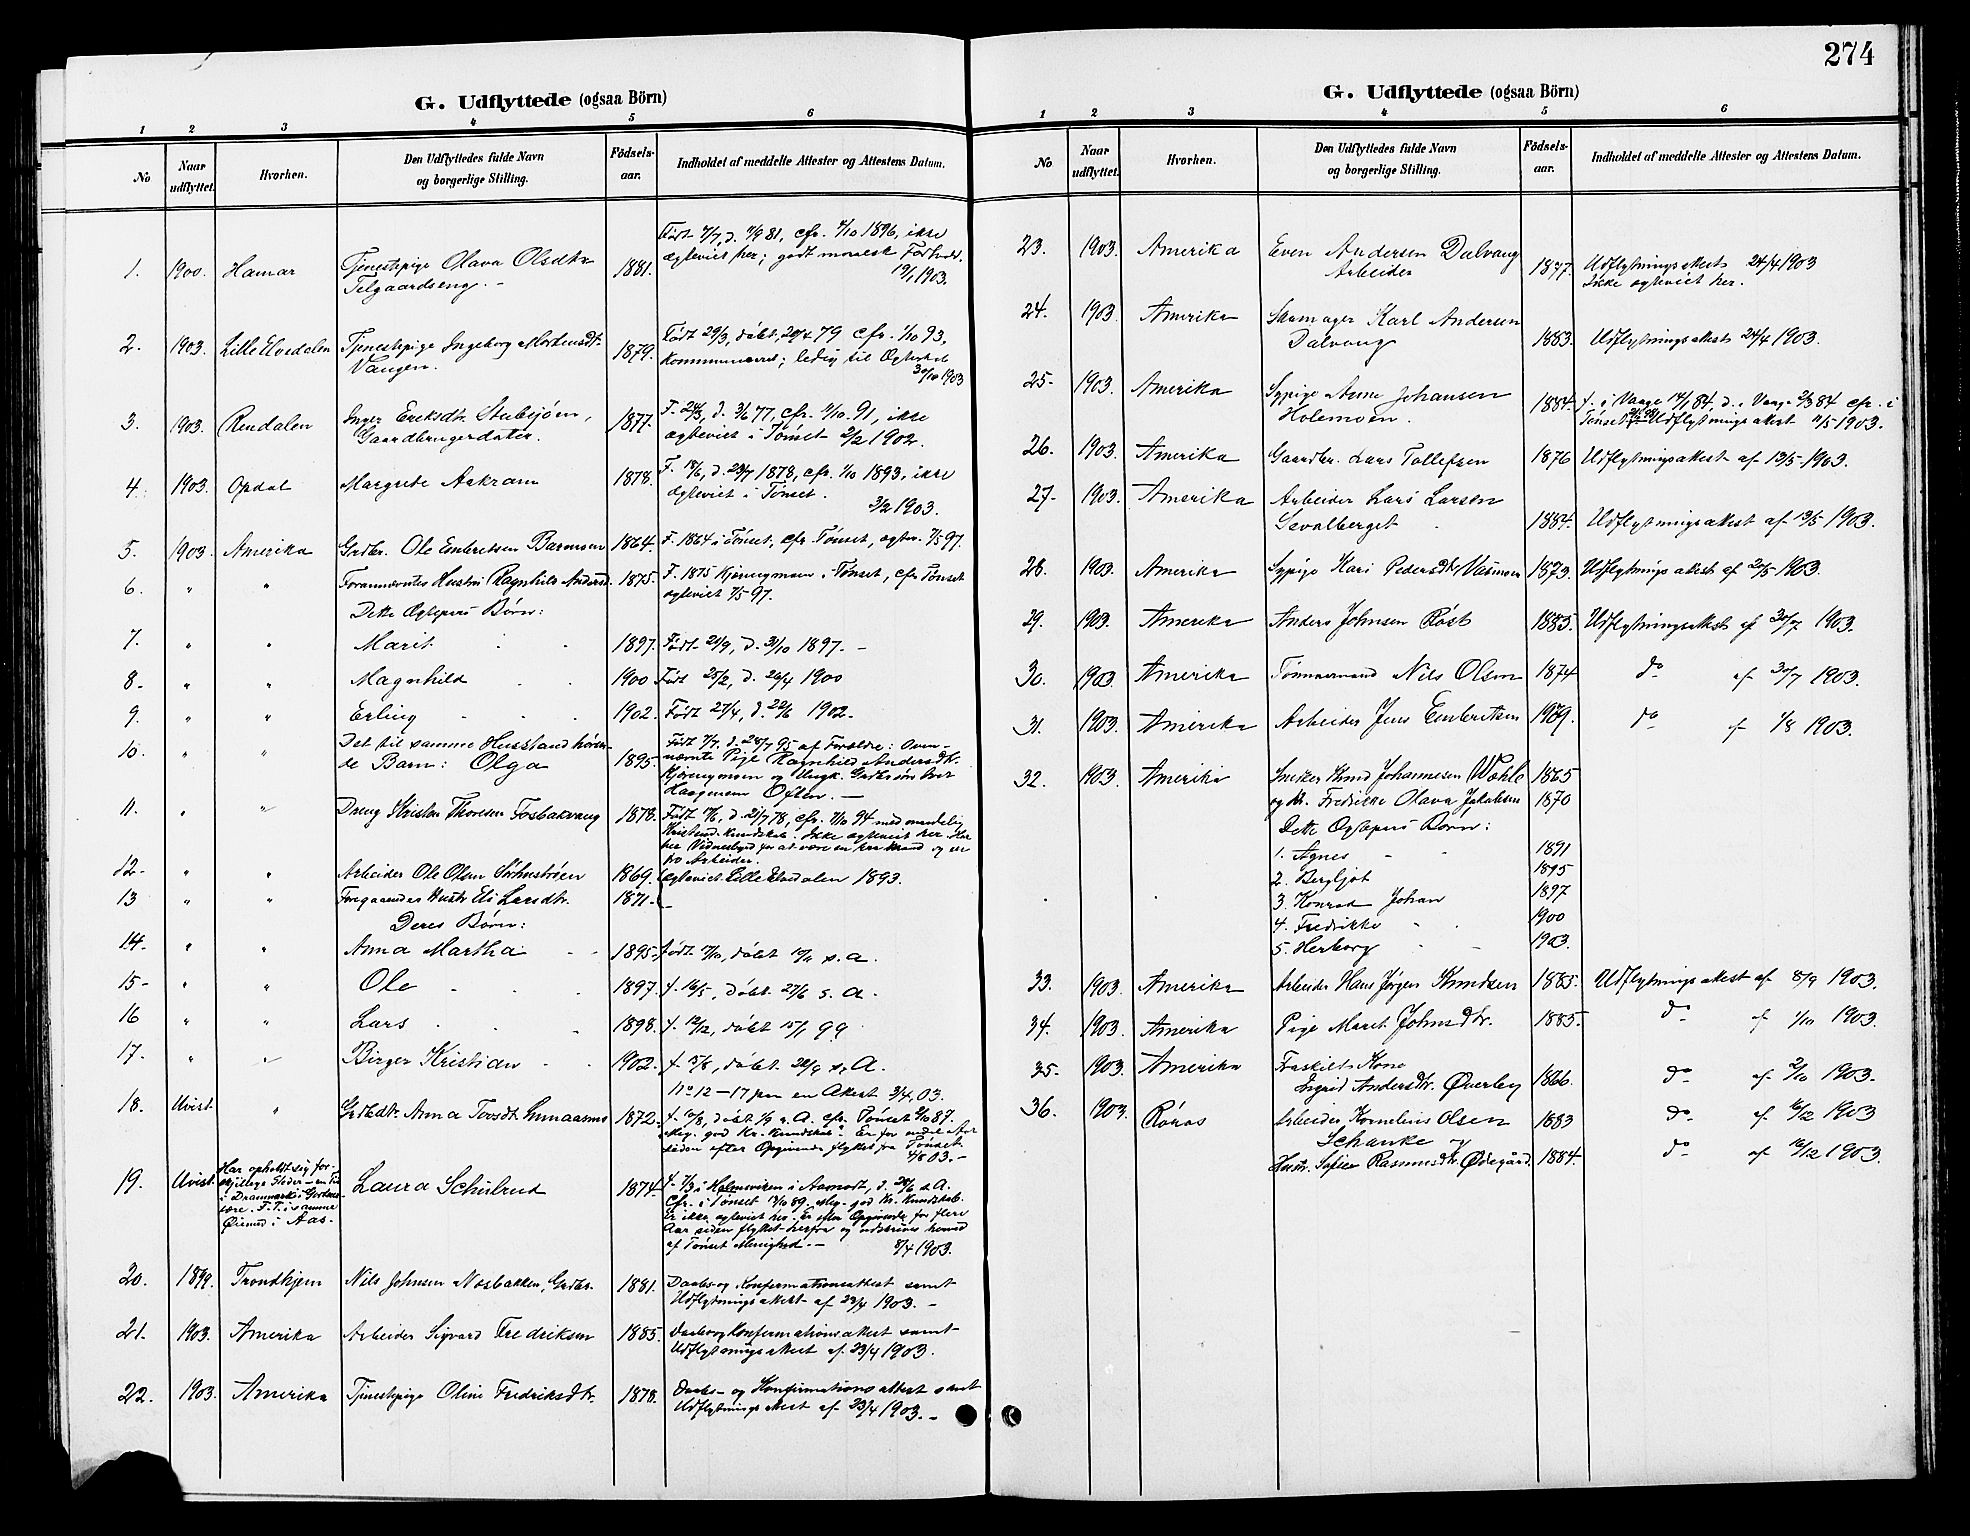 274
G. Udflyttede (ogsaa Börn)
1 2 3 4 5 6
No Naar udflyttet. Hvorhen. Den Udflyttedes fulde Navn og borgerlige Stilling. Födsels-aar. Indholdet af meddelte Attester og Attestens Datum.
1. 1900. Hamar Tjenestepige Olava Olsdtr 1881. Født 7/7, d. 11/9 81, cfr. 4/10 1896, ikke
Telgaardseng. - ægteviet her; godt moralsk Forhold.
1903.
2. 1903. Lille Elvedalen Tjenestepige Ingeborg Mortensdt. 1879. Født 29/3, døbt, 20/4 79 cfr. 1/10 93,
Vangen. kommuniceret; ledig til Ægteskab
30/10 1903
3. 1903. Rendalen Inger Eriksdtr. Stubsjøen, 1877. F. 24/3, d. 3/6 77, cfr. 4/10 91, ikke
Gaardbrugerdatter. ægteviet i Tønset 2/2 1902.
4. 1903. Opdal Margrete Aakrann 1878. F. 18/6, d. 23/7 1878, cfr. 1/10 1893, ikke
ægteviet i Tønset.
3/2 1903.
5. 1903. Amerika Grdbr. Ole Embretsen Barmoen 1864. F. 1864 i Tønset, cfr. Tønset, ægtev. 7/5 97.
6. " " Forannævntes Hustru Ragnhild Andersd. 1875. F. 1875 Kjønngmoen i Tønset, cfr Tønset
ægteviet 7/5 97.
Dette Ægtepars Børn:
7. " " Marit 1897. Født 21/9, d. 31/10 1897. -
8. " " Magnhild 1900 Født 25/2, d. 26/4 1900
9. " " Erling 1902. Født 27/4, d. 22/6 1902.
10. " " Det til samme Husstand høren- 1895. Født 7/7, d. 28/7 95 af Forældre: Oven-
de Barn: Olga nævnte Pige Ragnhild Andersdtr.
Kjønngmoen og Ungk. Gaardsøn Iver
Haagensen Often. -
11. " " Dreng Kristen Thoresen Fosbakvang 1878. Født 19/6, d. 21/7 78, cfr. 7/10 94 med maadelig
Kristend. kundskab. Ikke ægteviet her. Har
her Vidnesbyrd for at være en bra Mand og en
bra Arbeider.
12. " " Arbeider Ole Olsen 1869. ægteviet Lille Elvedalen 1893.
13 " " Foregaaendes Hustr Eli Larsdtr. 1871. -
Deres Børn:
14. " " Anna Martha 1895. født 17/10, døbt 17/11 s. a.
15 " " Ole 1897. f. 16/5, døbt 27/6 s. A.
16 " " Lars 1898. f. 12/12, døbt 15/1 99
17. " " Birger Kristian 1902. f. 15/8, døbt 28/9 s. A.
No 12-17 paa en Attest 3/4, 03.
18. Uvist " Grdbdtr. Anna Torsdtr. 1872. f. 10/8, døbt 1/9 s. A. cfr. Tønset 2/10 87.
Meg. god Kr. Kundskab. Er for endel Aar
siden efter Opgivende flyttet fra Tønset.
4/3 03. -
19. Uvist. Har opholdt sig for- Laura Schulrud 1874. f. 7/3 i Holmsveen i Aamodt, d. 26/6 s. A.
skjellige Steder - en Tid cfr. i Tønset 13/10 89. Meg. god Kr. Kundskab.
i Drammark i Gudm- Er ikke ægteviet her. Er efter Opgivende for flere
Aar siden flyttet herfra og udskrives herved
Øiemed i Aas. af Tønset Menighed. - 8/4 1903.
20. 1899. Trondhjem Nils Johnsen Næsbakken, Grdbr. 1881. Daabs- og Konfirmationsattest samt
Udflytningsattest af 23/4 1903. -
21. 1903. Amerika Arbeider Sigvard Fredriksen 1885. Daabs og Konfirmationsattest samt
Udflytningsattest af 23/4 1903.
22. 1903. Amerika Tjenestepige Oline Fredriksdtr. 1878. Daabs- og Konfirmationsattest samt
Udflytningsattest af 23/4 1903. -
G. Udflyttede (ogsaa Börn)
1 2 3 4 5 6
No Naar udflyttet. Hvorhen. Den Udflyttedes fulde Navn og borgerlige Stilling. Födsels-aar. Indholdet af meddelte Attester og Attestens Datum.
23. 1903. Amerika Even Andersen Dalvang 1877. Udflytningsattest 24/4 1903
Arbeider Ikke ægteviet her.
24. 1903. Amerika Skomager Karl Andersen
Dalvang 1883. Udflytningsattest 24/4 1903.
25. 1903. Amerika Sypige Anne Johansen 1884. f. i Vaage 14/1 84, d. i Vaage 2/3 84 cfr. i
Holemoen. Tønset Udflytningsattest 11/5 1903.
26. 1903. Amerika Gaardbr. Lars Tollefsen 1876 Udflytningsattest af 13/5 1903.
27. 1903. Amerika Arbeider Lars Larsen
Savalberget 1884. Udflytningsattest af 13/5 1903.
28. 1903. Amerika Sypige Kari Pedersdtr. Vasmoen 1873. Udflytningsattest af 20/5 1903.
29. 1903. Amerika Anders Johnsen Røst 1885. Udflytningsattest af 30/7 1903.
30. 1903. Amerika Tømmermand Nils Olsen 1874 do af 30/7 1903.
31. 1903. Amerika Arbeider Jens Embretsen 1879. do af 1/8 1903.
32. 1903. Amerika Snekker Knud Johannesen Wæhle 1865
og Fredrikke Olava Jakobsen 1870
Dette Ægtepars Børn:
1. Agnes 1891
2. Bergljot 1895
3. Konrad Johan 1897
4. Fredrikke 1900
5. Herborg 1903.
33. 1903. Amerika Arbeider Hans Jørgen Knudsen 1885. Udflytningsattest af 8/9 1903.
34. 1903. Amerika Pige Marit Johnsdtr. 1885. do af 1/10 1903.
35. 1903. Amerika Fraskilt Kone
Ingrid Andersdtr. Øverby 1866. do af 2/10 1903.
36. 1903. Røros Arbeider Kornelius Olsen 1883 do af 16/12 1903
Schanke og
Hustr. Sofie Rasmusdtr. Ødegård. 1884. do af 16/12 1903.